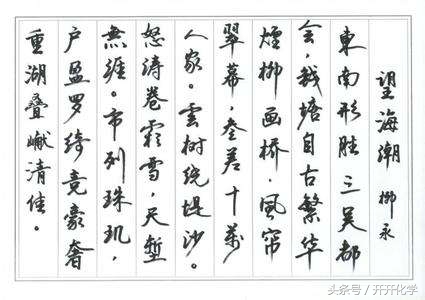 望海潮 柳永
東南形胜三吴都
会,钱塘自古繁華
煙柳画桥,風帘
翠幕,参差十萬
人家。雲树绕堤沙。
怒涛卷霜雪,天堑
無涯。市列珠玑,
户盈罗绮竞豪奢
重湖叠巘清佳。
头条号/开开化学